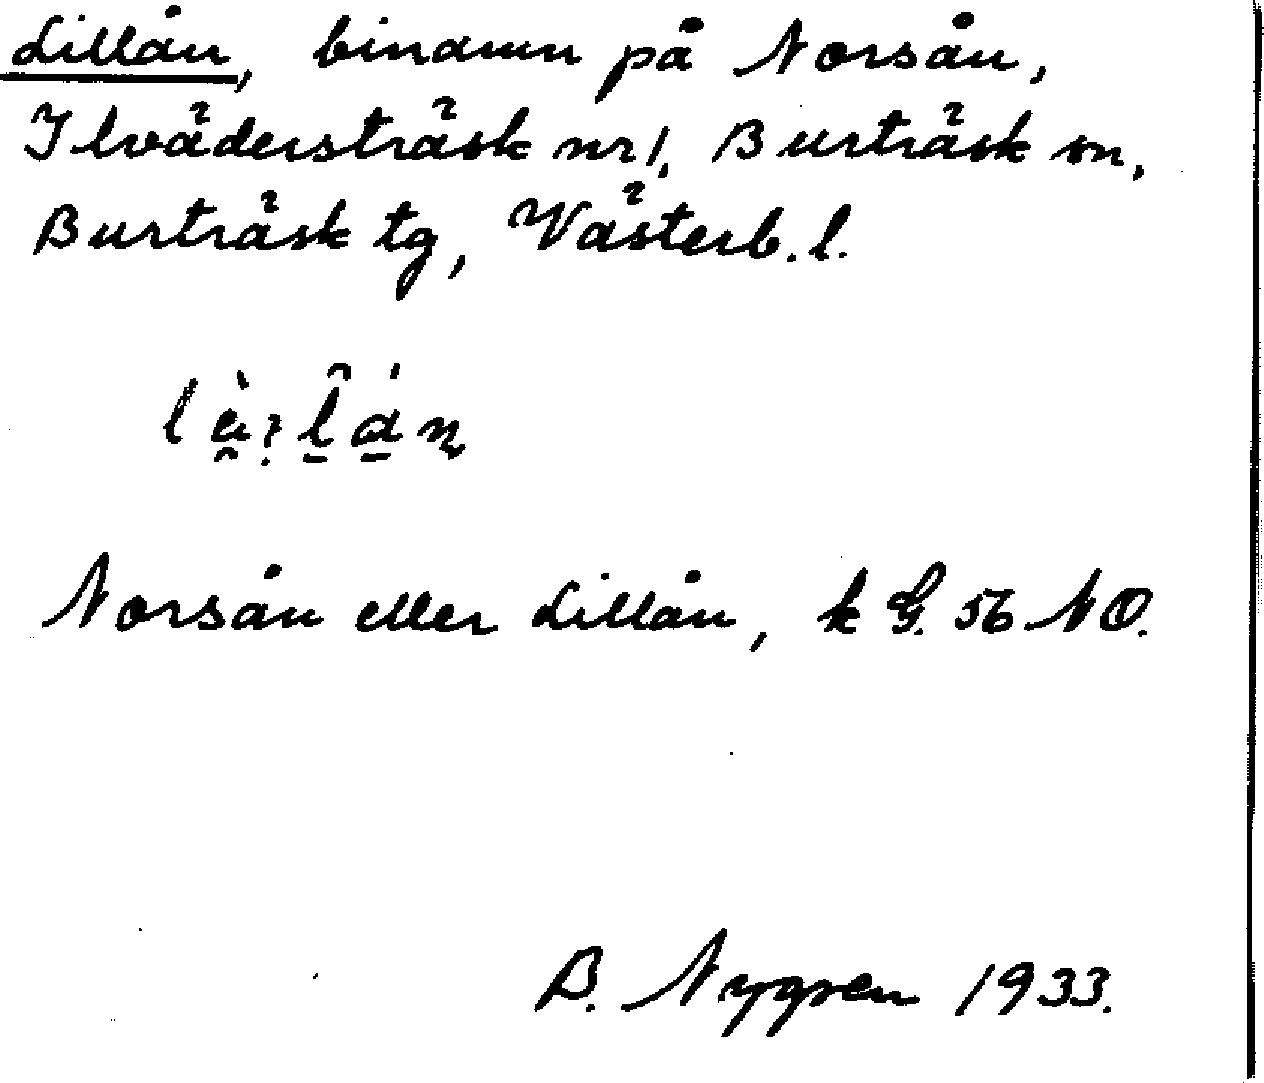 Lillån, binamn på Norsån,
Ilvädersträsk nr 1, Burträsk sn,
Burträsk tg, Västerb. l.
Norsån eller Lillån, k G. 56 NO.
B. Nygren 1933.